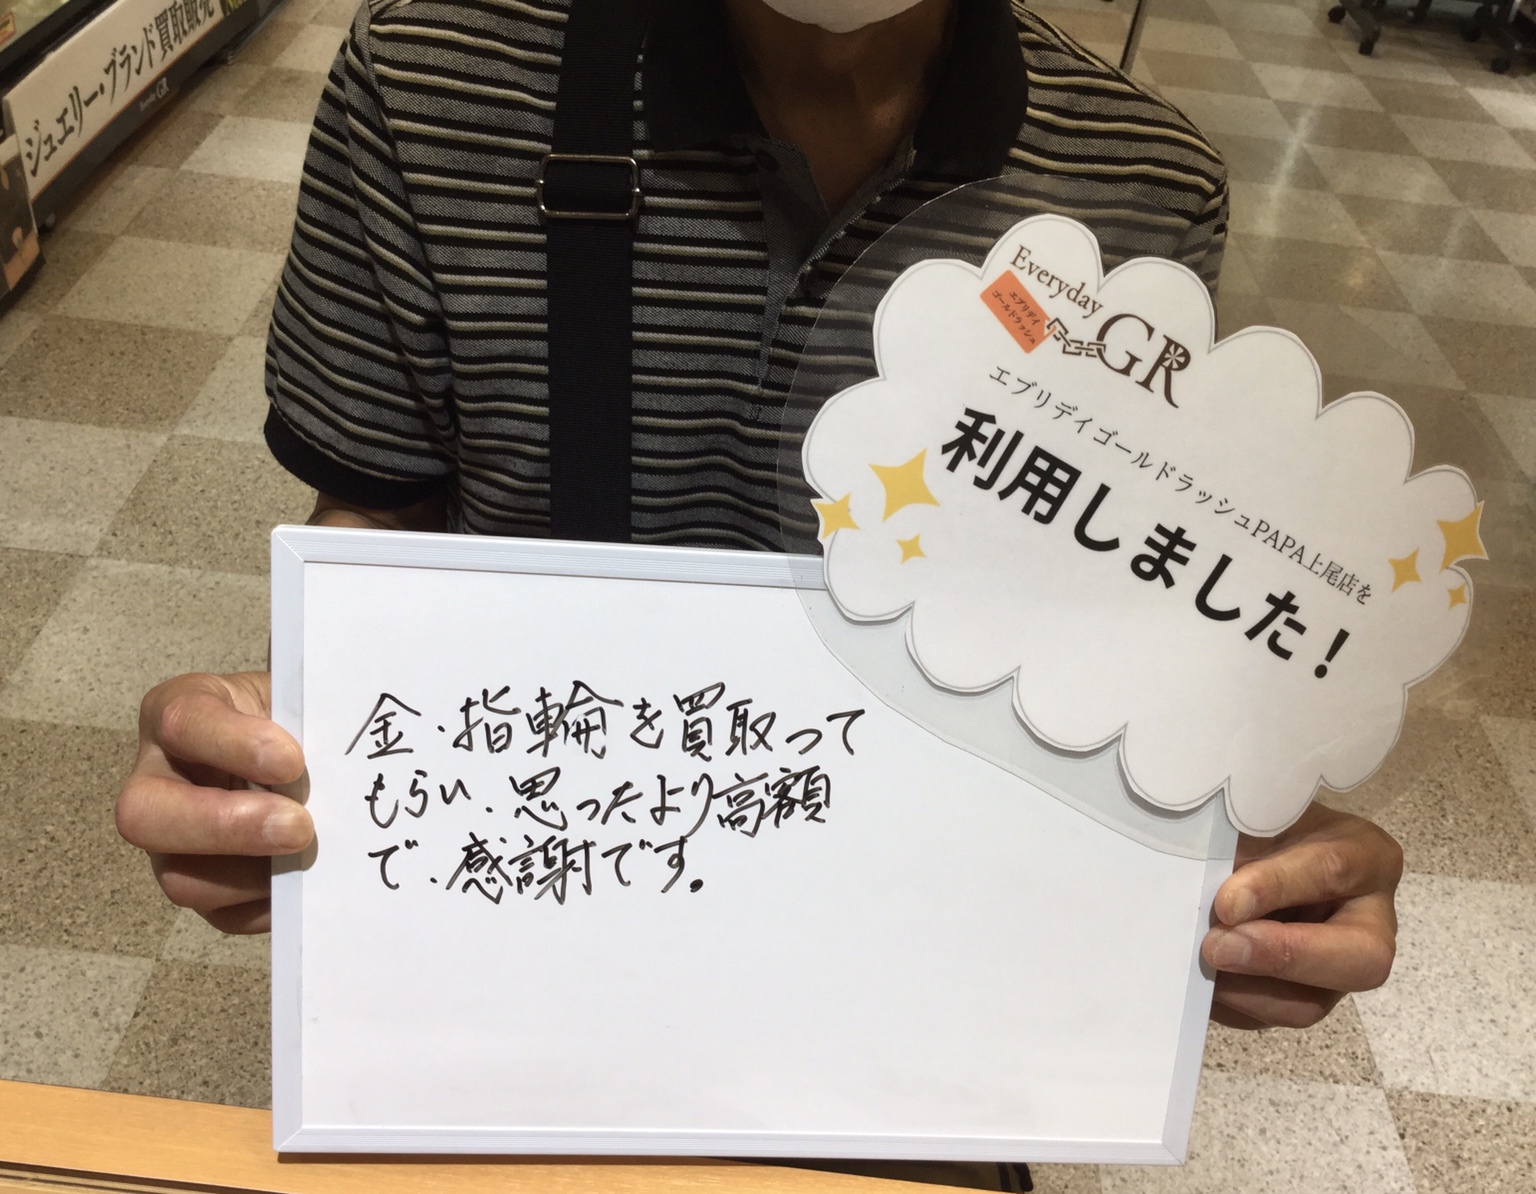 ジュエリー・ブランド買取販売
Everyday GR
Everyday
エブリデイ
ゴールドラッシュ
GR
エブリデイゴールドラッシュPAPA上尾店を
利用しました！
金・指輪を買取って
もらい、思ったより高額
で、感謝です。